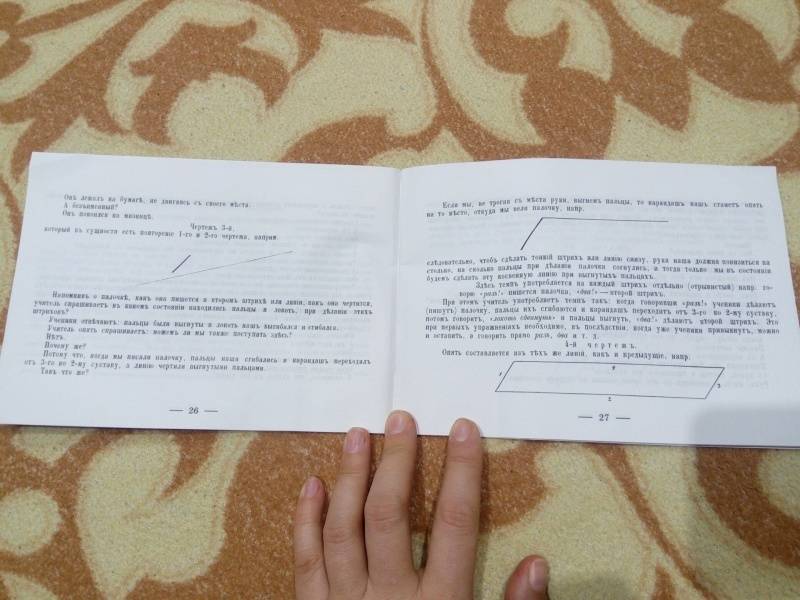 Онъ лежалъ на бумагѣ, не двигаясь съ своего мѣста.
А безъименный?
Онъ покоился на мизинцѣ.
Чертежъ 3-й,
который въ сущности есть повтореніе 1-го и 2-го чертежа, наприм.
Напомнивъ о палочкѣ, какъ она пишется и второмъ штрихѣ или линіи, какъ она чертится,
учитель спрашиваетъ въ какомъ состояніи находились пальцы и локоть, при дѣланіи этихъ
штриховъ?
Ученики отвѣчаютъ: пальцы были выгнуты и локоть нашъ выгибался и сгибался.
Учитель опять спрашиваетъ: можемъ ли мы также поступать здѣсь?
Нѣтъ.
Почему же?
Потому что, когда мы писали палочку, пальцы наши сгибались и карандашъ переходилъ
отъ 3-го ко 2-му суставу, а линію чертили выгнутыми пальцами.
Такъ что же?
— 26 —
Если мы, не трогая съ мѣста руки, выгнемъ пальцы, то карандашъ нашъ станетъ опять
на то мѣсто, откуда мы вели палочку, напр.
слѣдовательно, чтобъ сдѣлать тонкій штрихъ или линію снизу, рука наша должна понизиться на
столько, на сколько пальцы при дѣланіи палочки согнулись, и тогда только мы въ состояніи
будемъ сдѣлать эту косвенную линію при выгнутыхъ пальцахъ.
Здѣсь темпъ употребляется на каждый штрихъ отдѣльно (отрывистый) напр. го-
ворю «разъ!» пишется палочка, «два!»—второй штрихъ.
При этомъ учитель употребляетъ темпъ такъ: когда говорящій «разъ!» ученики дѣлаютъ
(пишутъ) палочку, пальцы ихъ сгибаются и карандашъ переходитъ отъ 3-го ко 2-му суставу,
потомъ говоритъ, «локоть сдвинуть» и пальцы выгнуть, «два!» дѣлаютъ второй штрихъ. Это
при первыхъ упражненіяхъ необходимо, въ послѣдствіи, когда уже ученики привыкнутъ, можно
и оставить, а говорить прямо разъ, два и т. д.
4-й чертежъ.
Опять составляется изъ тѣхъ же линій, какъ и предыдущіе, напр.
4
1
3
2
— 27 —